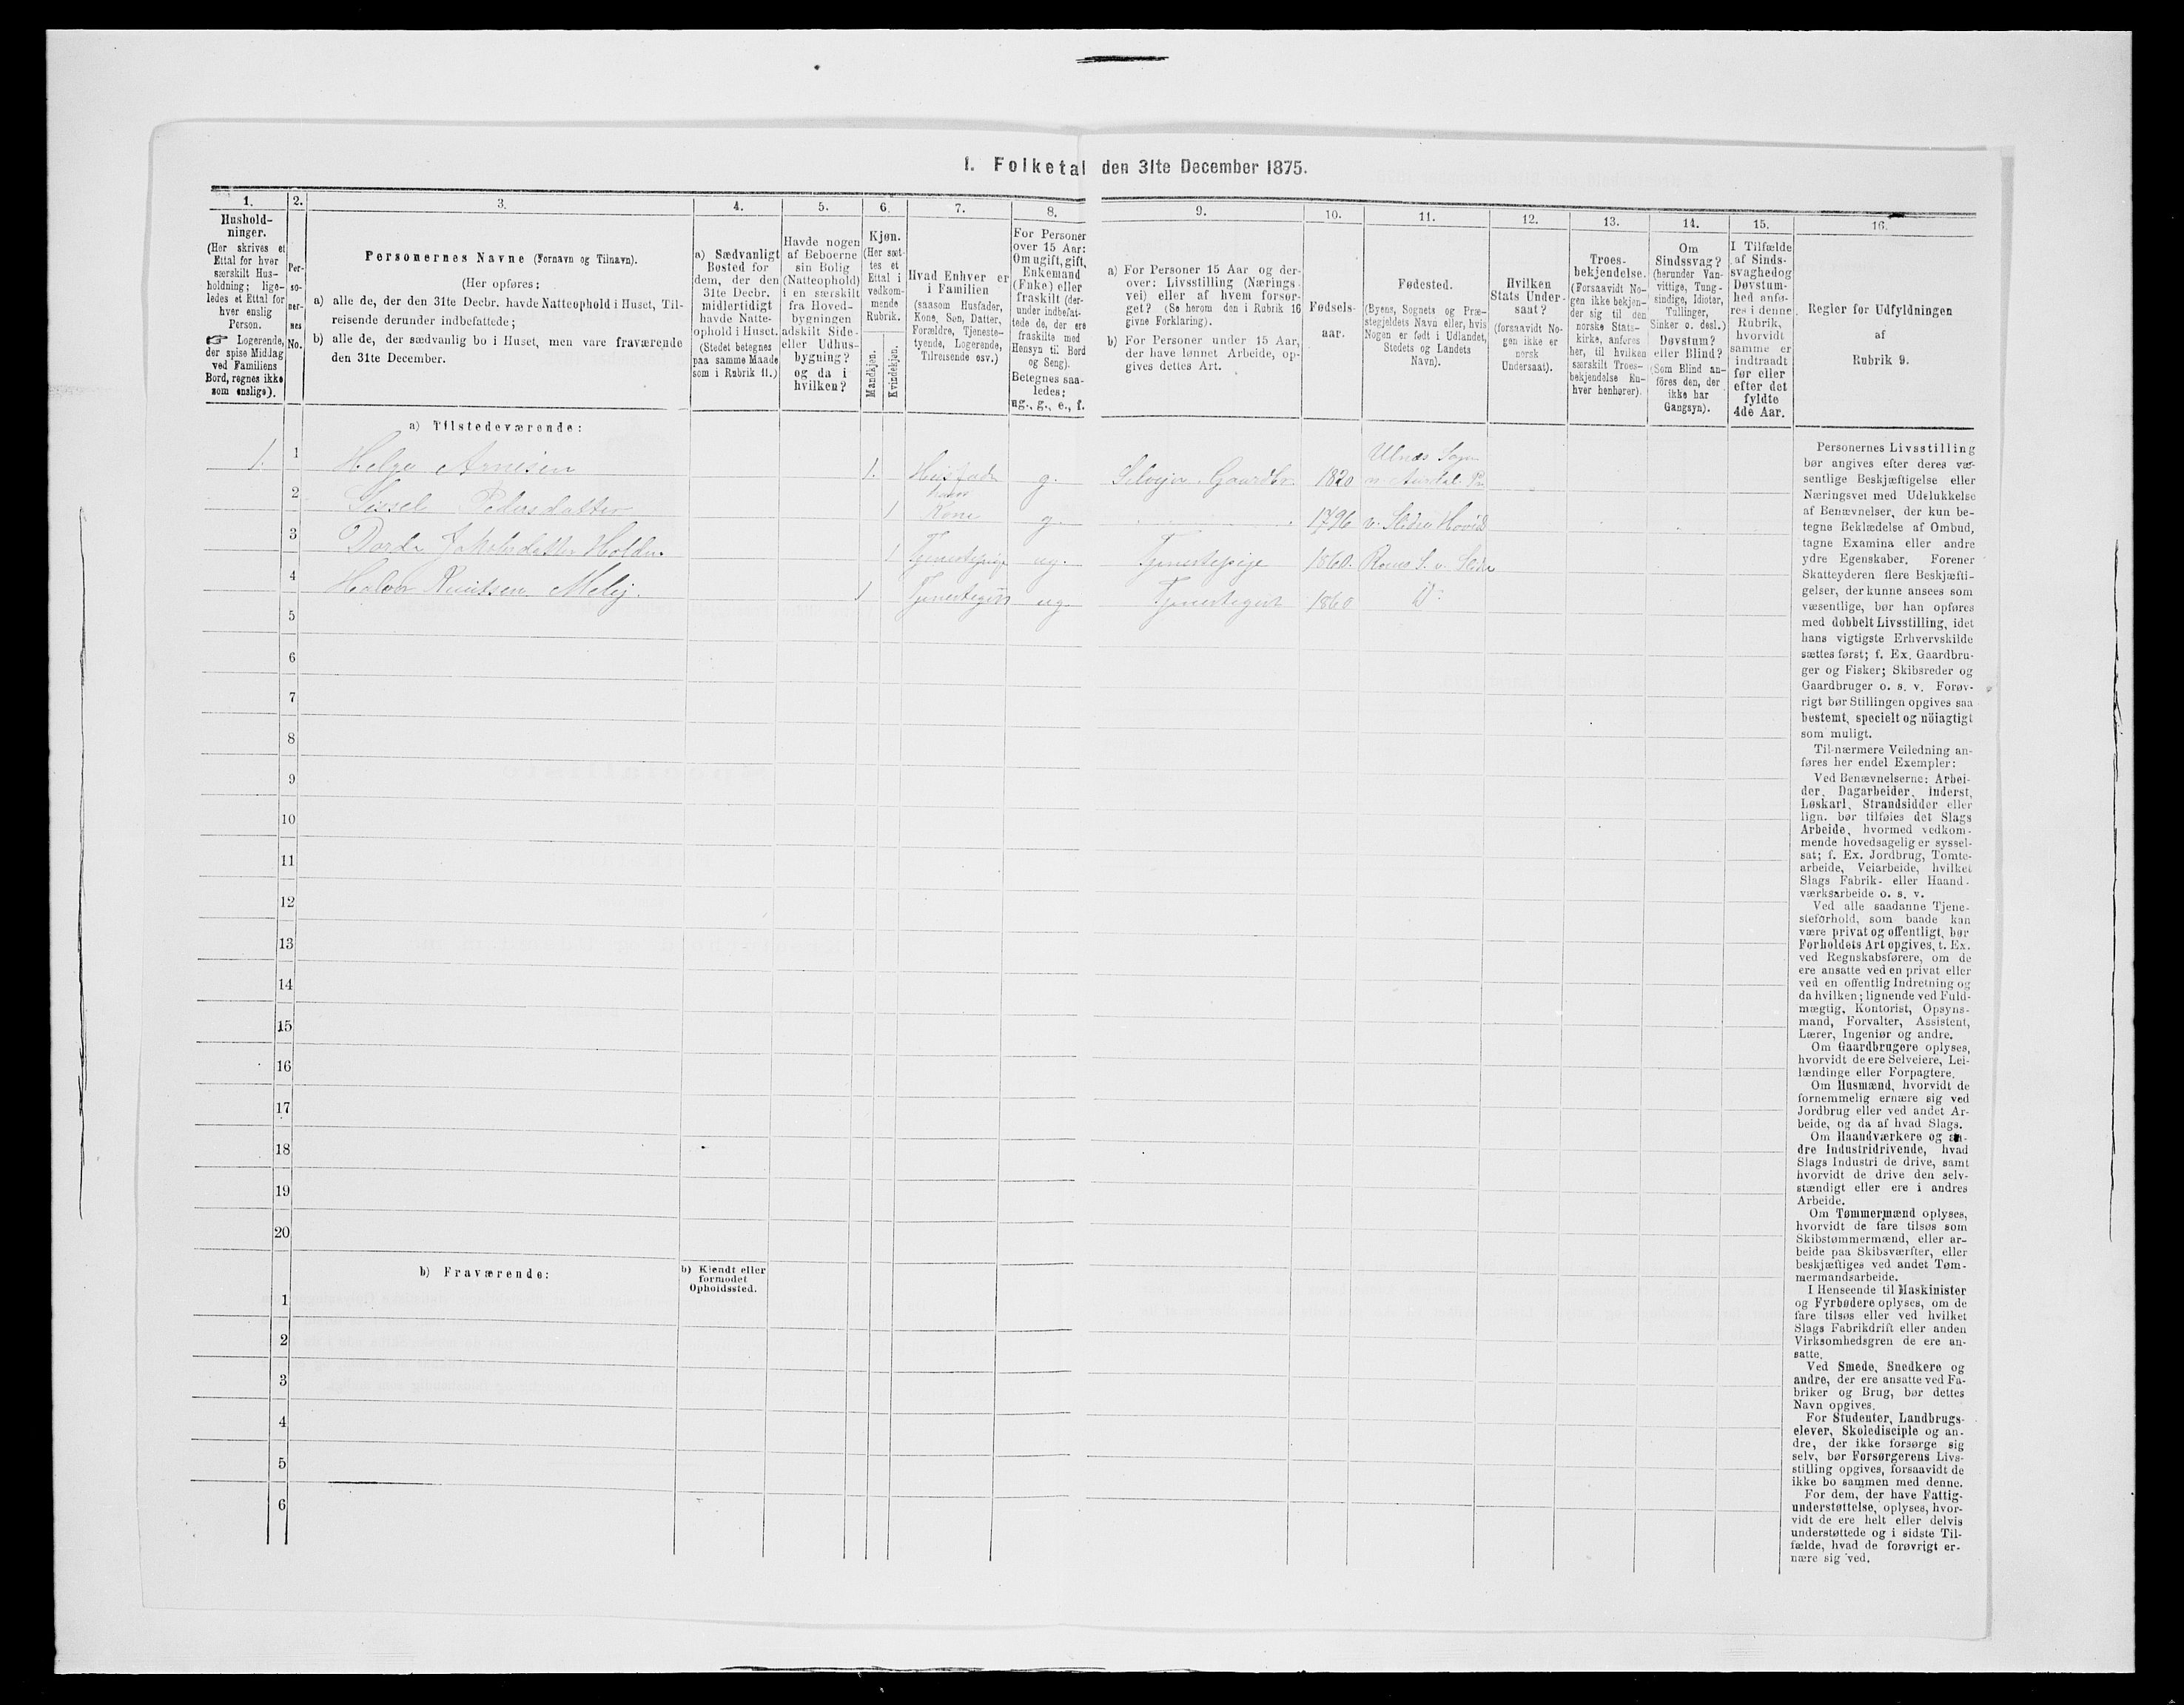 1. Folketal den 31te December 1875.
1.
Hushold-
ninger.
(Her skrives et
Ettal for hver
særskilt Hus-
holdning; lige-
ledes et Ettal for
hver enslig
Person.
☞ Logerende,
der spise Middag
ved Familiens
Bord, regnes ikke
som enslige).
2.
Per-
so-
ner-
nes
No.
3.
Personernes Navne (Fornavn og Tilnavn).
(Her opføres:
a) alle de, der den 31te Decbr. havde Natteophold i Huset, Til-
reisende derunder indbefattede;
b) alle de, der sædvanlig bo i Huset, men vare fraværende
den 31te December.
4.
a) Sædvanligt
Bosted for
dem, der den
31te Decbr.
midlertidigt
havde Natte-
ophold i Huset.
(Stedet betegnes
paa samme Maade
som i Rubrik 11.)
5.
Havde nogen
af Beboerne
sin Bolig
(Natteophold)
i en særskilt
fra Hoved-
bygningen
adskilt Side-
eller Udhus-
bygning?
og da i
hvilken?
6.
Kjøn.
(Her sæt-
tes et
Ettal i
vedkom-
mende
Rubrik.
Mandkjøn.
Kvindekjøn.
7.
Hvad Enhver er
i Familien
(saasom Husfader,
Kone, Søn, Datter,
Forældre, Tjeneste-
tyende, Logerende,
Tilreisende osv.)
8.
For Personer
over 15 Aar:
Om ugift, gift,
Enkemand
(Enke) eller
fraskilt (der-
under indbefat-
tede de, der ere
fraskilte med
Hensyn til Bord
og Seng).
Betegnes saa-
ledes:
ug., g., e., f.
9.
a) For Personer 15 Aar og der-
over: Livsstilling (Nærings-
vei) eller af hvem forsør-
get? (Se herom den i Rubrik 16
givne Forklaring).
b) For Personer under 15 Aar,
der have lønnet Arbeide, op-
gives dettes Art.
10.
Fødsels-
aar.
11.
Fødested.
(Byens, Sognets og Præ-
stegjeldets Navn eller, hvis
Nogen er født i Udlandet,
Stedets og Landets
Navn).
12.
Hvilken
Stats Under-
saat?
(forsaavidt No-
gen ikke er
norsk
Undersaat).
13.
Troes-
bekjendelse.
(Forsaavidt No-
gen ikke bekjen-
der sig til den
norske Stats-
kirke, anføres
her, til hvilken
særskilt Troes-
bekjendelse En-
hver henhører).
14.
Om
Sindssvag?
(herunder Van-
vittige, Tung-
sindige, Idioter,
Tullinger,
Sinker o. desl.)
Døvstum?
eller Blind?
(Som Blind an-
føres den, der
ikke har
Gangsyn).
15.
I Tilfælde
af Sinds-
svaghed og
Døvstum-
hed anfø-
res i denne
Rubrik,
hvorvidt
samme er
indtraadt
før eller
efter det
fyldte
4de Aar.
16.
Regler for Udfyldningen
af
Rubrik 9.
a) Tilstedeværende:
1. 1 Helge Arnesen 1. Husfader g. Selveier. Gaardbr. 1820 Ulnæs Sogn
2 Sissel Pedersdatter 1 Kone g. 1796
3 Jakobsdatter 1 Tjenestepige ug. Tjenestepige 1860.
4 Halvor Knutsen 1 Tjenestegut ug. Tjenestegut 1860 Do
5
6
7
8
9
10
11
12
13
14
15
16
17
18
19
20
b) Fraværende:
b) Kjendt eller
formodet
Opholdssted.
1
2
3
4
5
6
Personernes Livsstilling
bør angives efter deres væ-
sentlige Beskjæftigelse eller
Næringsvei med Udelukkelse
af Benævnelser, der kun be-
tegne Beklædelse af Ombud,
tagne Examina eller andre
ydre Egenskaber. Forener
Skatteyderen flere Beskjæfti-
gelser, der kunne ansees som
væsentlige, bør han opføres
med dobbelt Livsstilling, idet
hans vigtigste Erhvervskilde
sættes først; f. Ex. Gaardbru-
ger og Fisker; Skibsreder og
Gaardbruger o. s. v. Forøv-
rigt bør Stillingen opgives saa
bestemt, specielt og nöiagtigt
som muligt.
Til nærmere Veiledning an-
føres her endel Exempler:
Ved Benævnelserne: Arbei-
der, Dagarbeider, Inderst,
Løskarl, Strandsidder eller
lign. bør tilføies det Slags
Arbeide, hvormed vedkom-
mende hovedsagelig er syssel-
sat; f. Ex. Jordbrug, Tomte-
arbeide, Veiarbeide, hvilket
Slags Fabrik- eller Haand-
værksarbeide o. s. v.
Ved alle saadanne Tjene-
steforhold, som baade kan
være privat og offentligt, bør
Forholdets Art opgives, t. Ex.
ved Regnskabsførere, om de
ere ansatte ved en privat eller
ved en offentlig Indretning og
da hvilken; lignende ved Fuld-
mægtig, Kontorist, Opsyns-
mand, Forvalter, Assistent,
Lærer, Ingeniør og andre.
Om Gaardbrugere oplyses,
hvorvidt de ere Selveiere, Lei-
lændinge eller Forpagtere.
Om Husmænd, hvorvidt de
fornemmelig ernære sig ved
Jordbrug eller ved andet Ar-
beide, og da af hvad Slags.
Om Haandværkere og an-
dre Industridrivende, hvad
Slags Industri de drive, samt
hvorvidt de drive den selv-
stændigt eller ere i andres
Arbeide.
Om Tømmermænd oplyses,
hvorvidt de fare tilsøs som
Skibstømmermænd, eller ar-
beide paa Skibsværfter, eller
beskjæftiges ved andet Tøm-
mermandsarbeide.
I Henseende til Maskinister
og Fyrbødere oplyses, om de
fare tilsøs eller ved hvilket
Slags Fabrikdrift eller anden
Virksomhedsgren de ere an-
satte.
Ved Smede, Snedkere og
andre, der ere ansatte ved Fa-
briker og Brug, bør dettes
Navn opgives.
For Studenter, Landbrugs-
elever, Skoledisciple og an-
dre, der ikke forsørge sig
selv, bør Forsørgerens Livs-
stilling opgives, forsaavidt de
ikke bo sammen med denne.
For dem, der have Fattig-
understøttelse, oplyses, hvor-
vidt de ere helt eller delvis
understøttede og i sidste Til-
fælde, hvad de forøvrigt er-
nære sig ved.